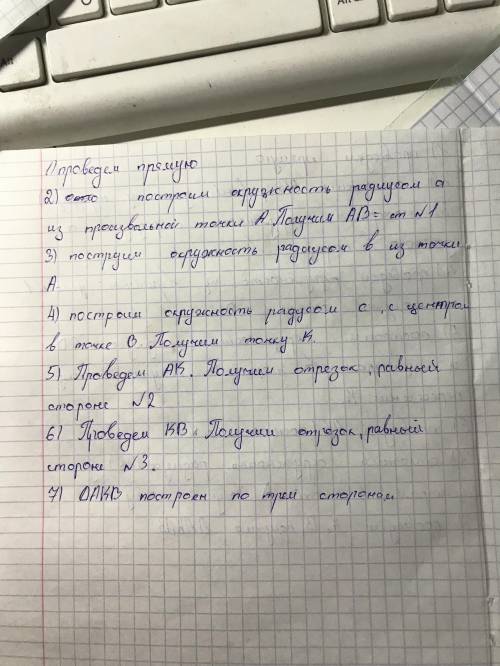 1) проведем прямую
2) построим окружность радиусом a
из произвольной точки A. Получим AB = от N1
3) построим окружность радиусом в из точки
A.
4) построим окружность радусом c, с центром
в точке B. Получим точку K.
5) Проведем AK. Получим отрезок, равный
стороне N2
6) Проведем KB. Получим отрезок, равный
стороне N3.
7) ΔAKB построен по трем сторонам
Alt